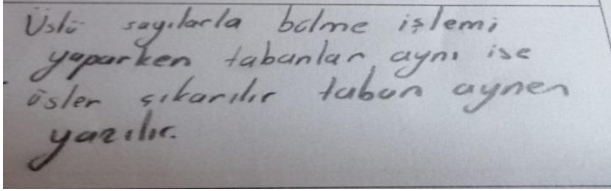 Üslü sayılarla bölme işlemi
yaparken tabanlar aynı ise
üsler çıkarılır taban aynen
yazılır.